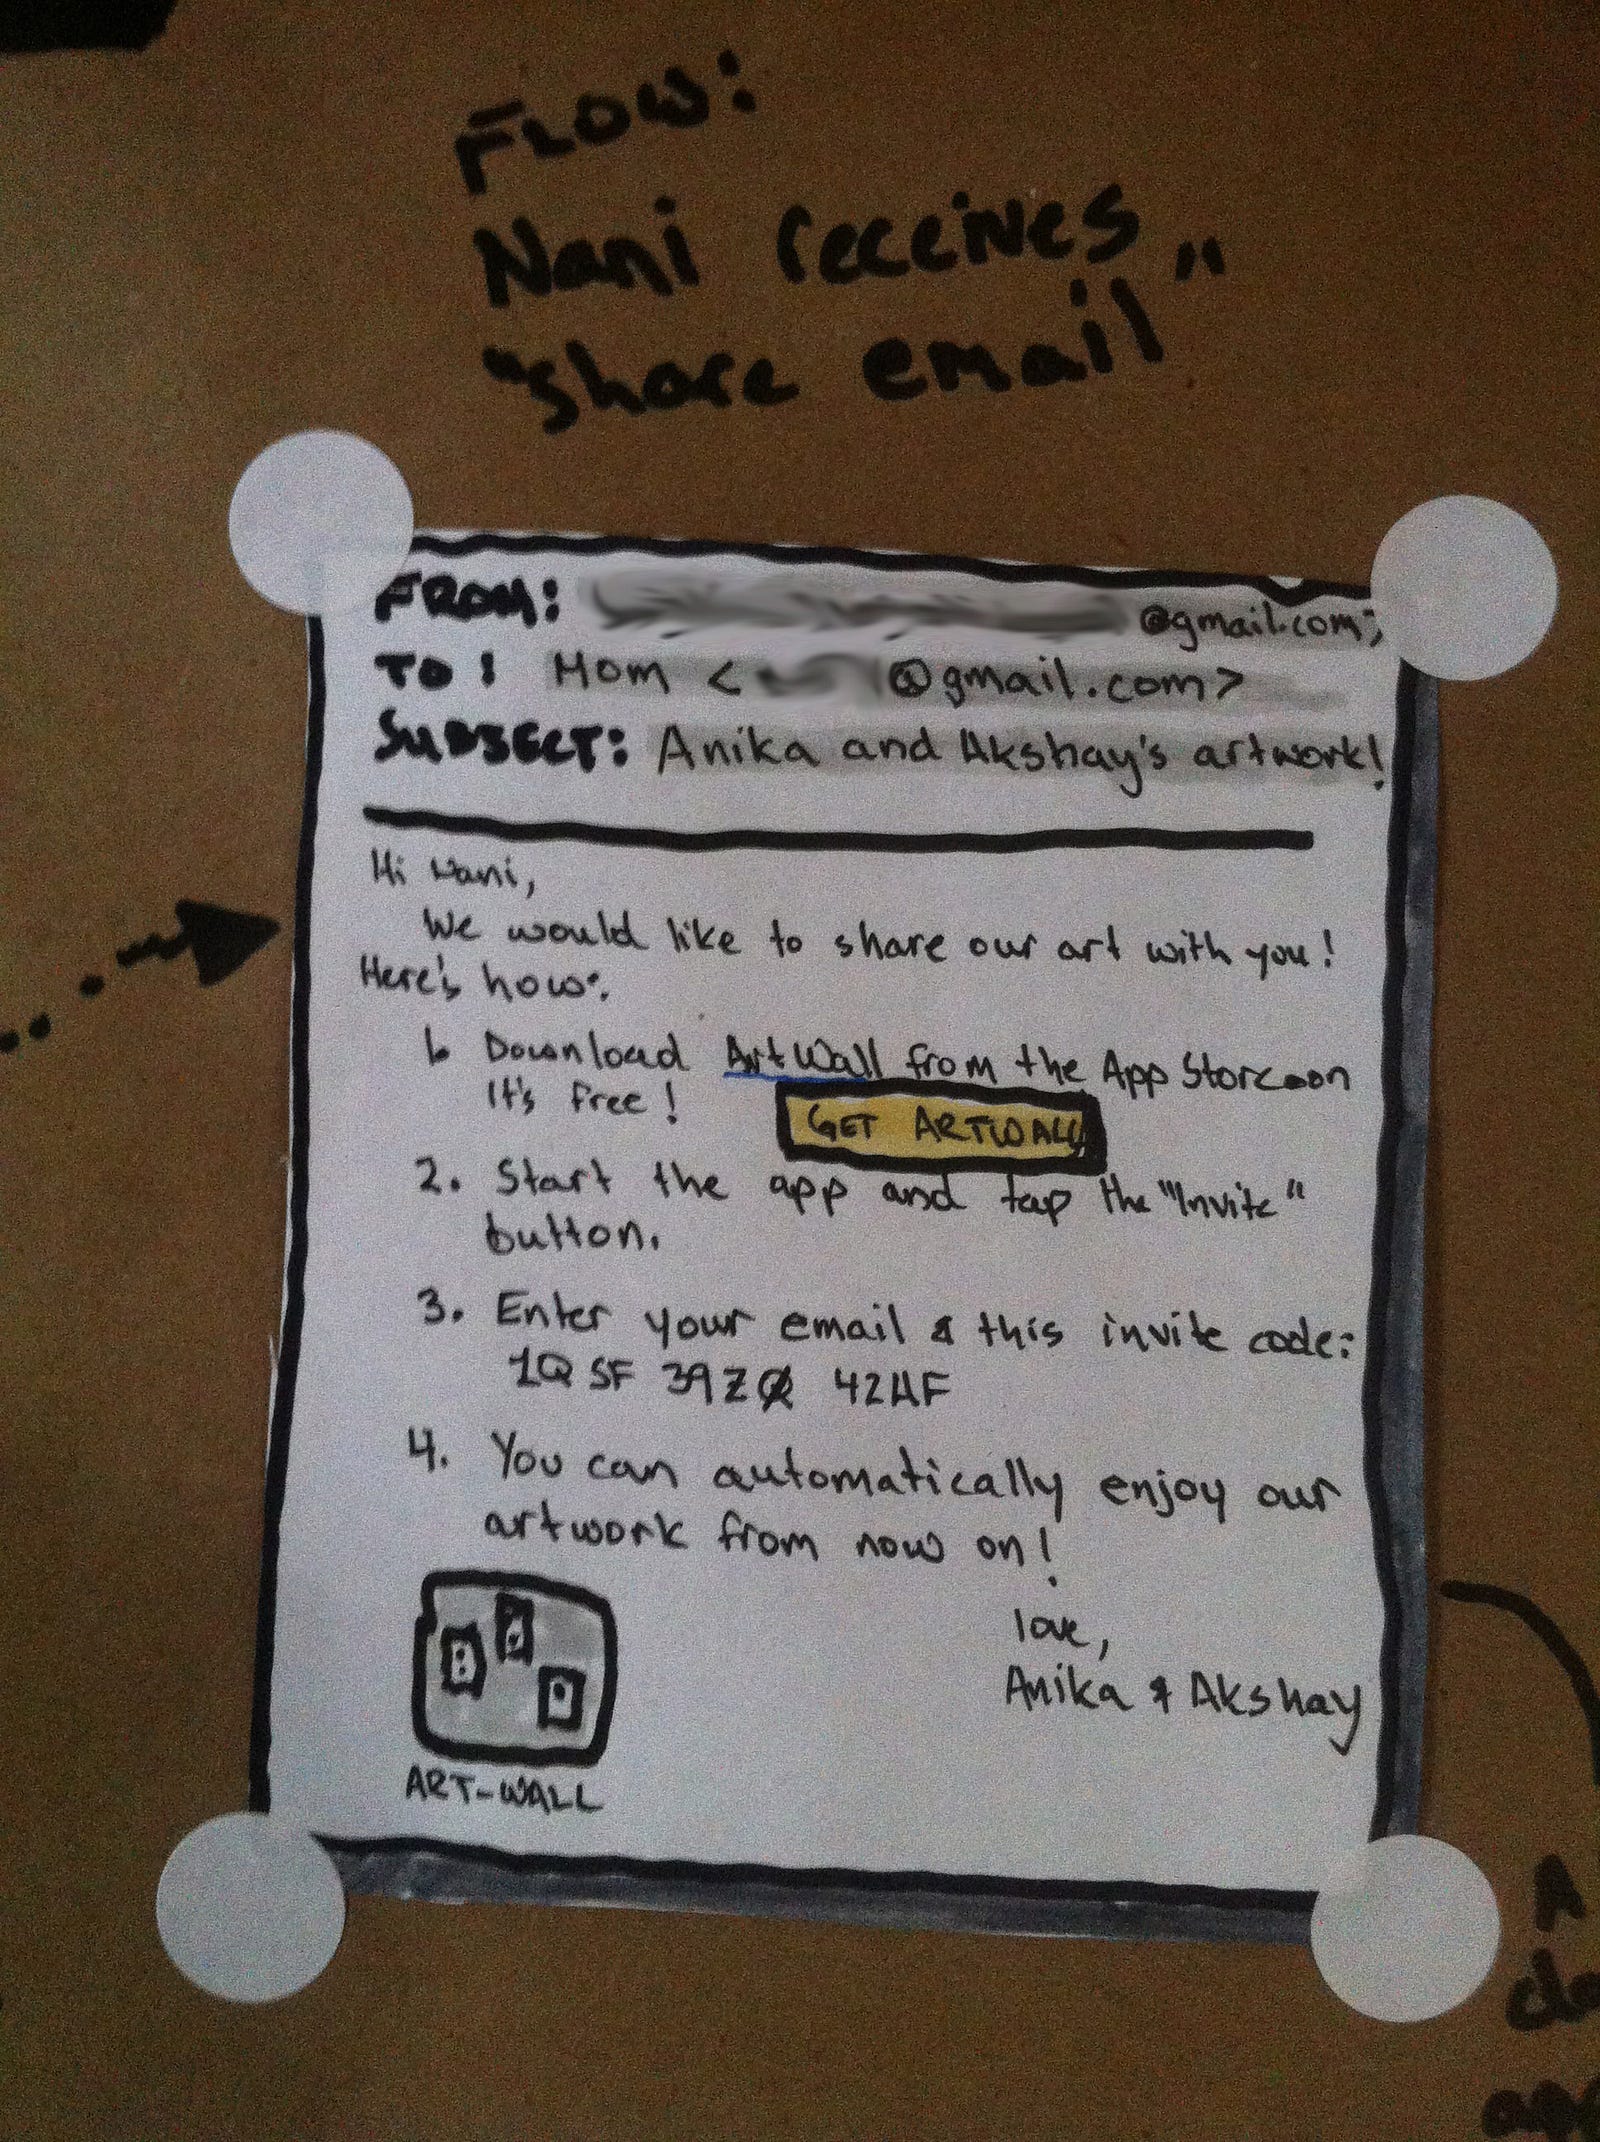 FLOW:
Nani receives
"share email"
FROM: @gmail.com;
TO: Mom < @gmail.com>
SUBJECT: Anika and Akshay's artwork!
Hi Nani,
We would like to share our art with you!
Here's how:
1. Download ArtWall from the App Store
It's free!
GET ARTWALL
2. Start the app and tap the "Invite"
button.
3. Enter your email & this invite code:
1QSF 39ZØ 42HF
4. You can automatically enjoy our
artwork from now on!
love,
Anika & Akshay
ART-WALL
A